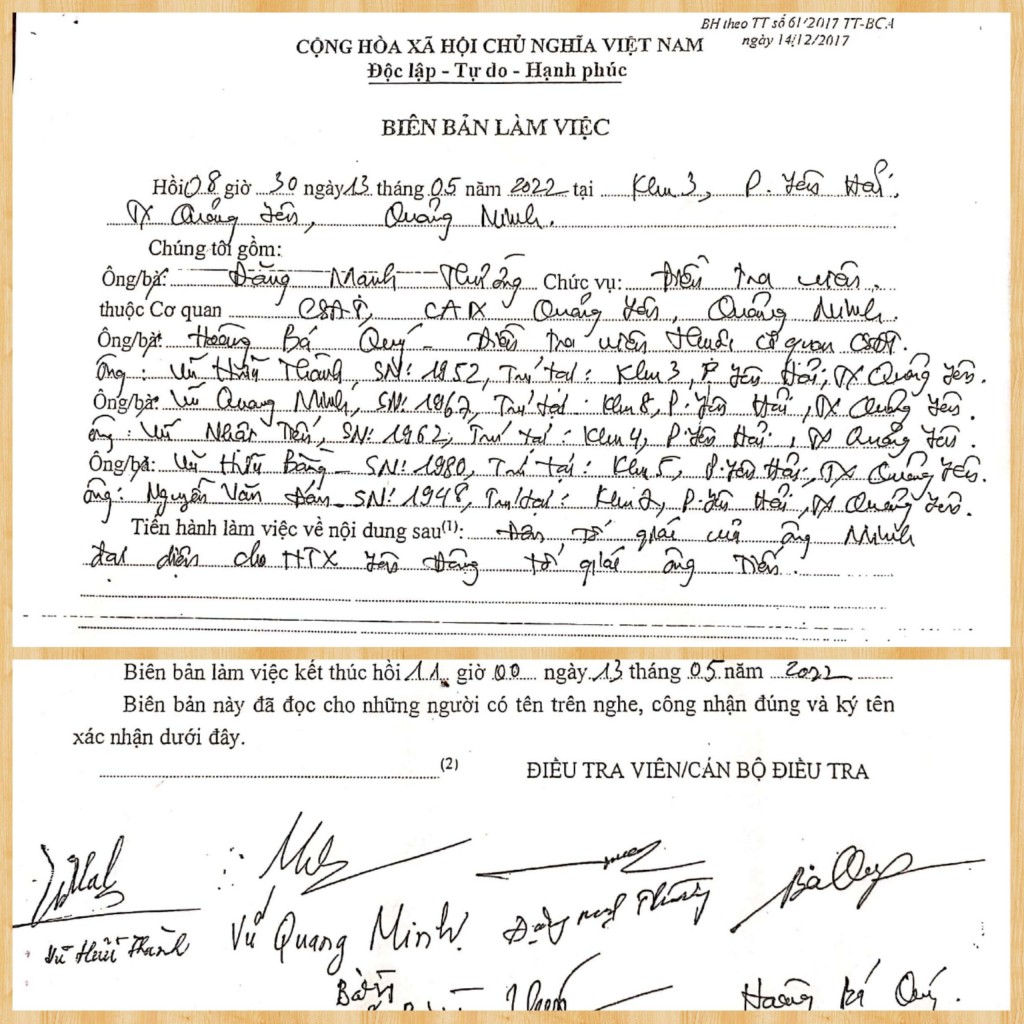 BH theo TT số 61/2017 TT-BCA
ngày 14/12/2017
CỘNG HÒA XÃ HỘI CHỦ NGHĨA VIỆT NAM
Độc lập - Tự do - Hạnh phúc
BIÊN BẢN LÀM VIỆC
Hồi 08 giờ 30 ngày 13 tháng 05 năm 2022 tại Khu 3, P. Yên Hải,
TX Quảng Yên, Quảng Ninh.
Chúng tôi gồm:
Ông/bà: Đặng Mạnh Thường Chức vụ: Điều tra viên,
thuộc Cơ quan CSĐT, CATX Quảng Yên, Quảng Ninh.
Ông/bà: Hoàng Bá Quý - Điều tra viên thuộc cơ quan CSĐT.
Ông: Vũ Hữu Thành, SN: 1952, Trú tại: Khu 3, P Yên Hải, TX Quảng Yên.
Ông/bà: Vũ Quang Minh, SN: 1967, Trú tại: Khu 8, P. Yên Hải, TX Quảng Yên.
Ông: Vũ Nhân Tiến, SN: 1962, Trú tại: Khu 4, P. Yên Hải, TX Quảng Yên.
Ông/bà: Vũ Hữu Bằng - SN: 1980, Trú tại: Khu 5, P. Yên Hải, TX Quảng Yên.
Ông: Nguyễn Văn SN: 1948, Trú tại: P. Yên Hải, TX Quảng Yên.
Tiến hành làm việc về nội dung sau(1): Đơn tố giác của ông Minh
đại diện cho HTX Yên Đông tố giác ông Tiến.
Biên bản làm việc kết thúc hồi 11 giờ 00 ngày 13 tháng 05 năm 2022
Biên bản này đã đọc cho những người có tên trên nghe, công nhận đúng và ký tên
xác nhận dưới đây.
(2) ĐIỀU TRA VIÊN/CÁN BỘ ĐIỀU TRA
Bá Quý
Vũ Hữu Thành Vũ Quang Minh Đặng Mạnh Thường
Hoàng Bá Quý.